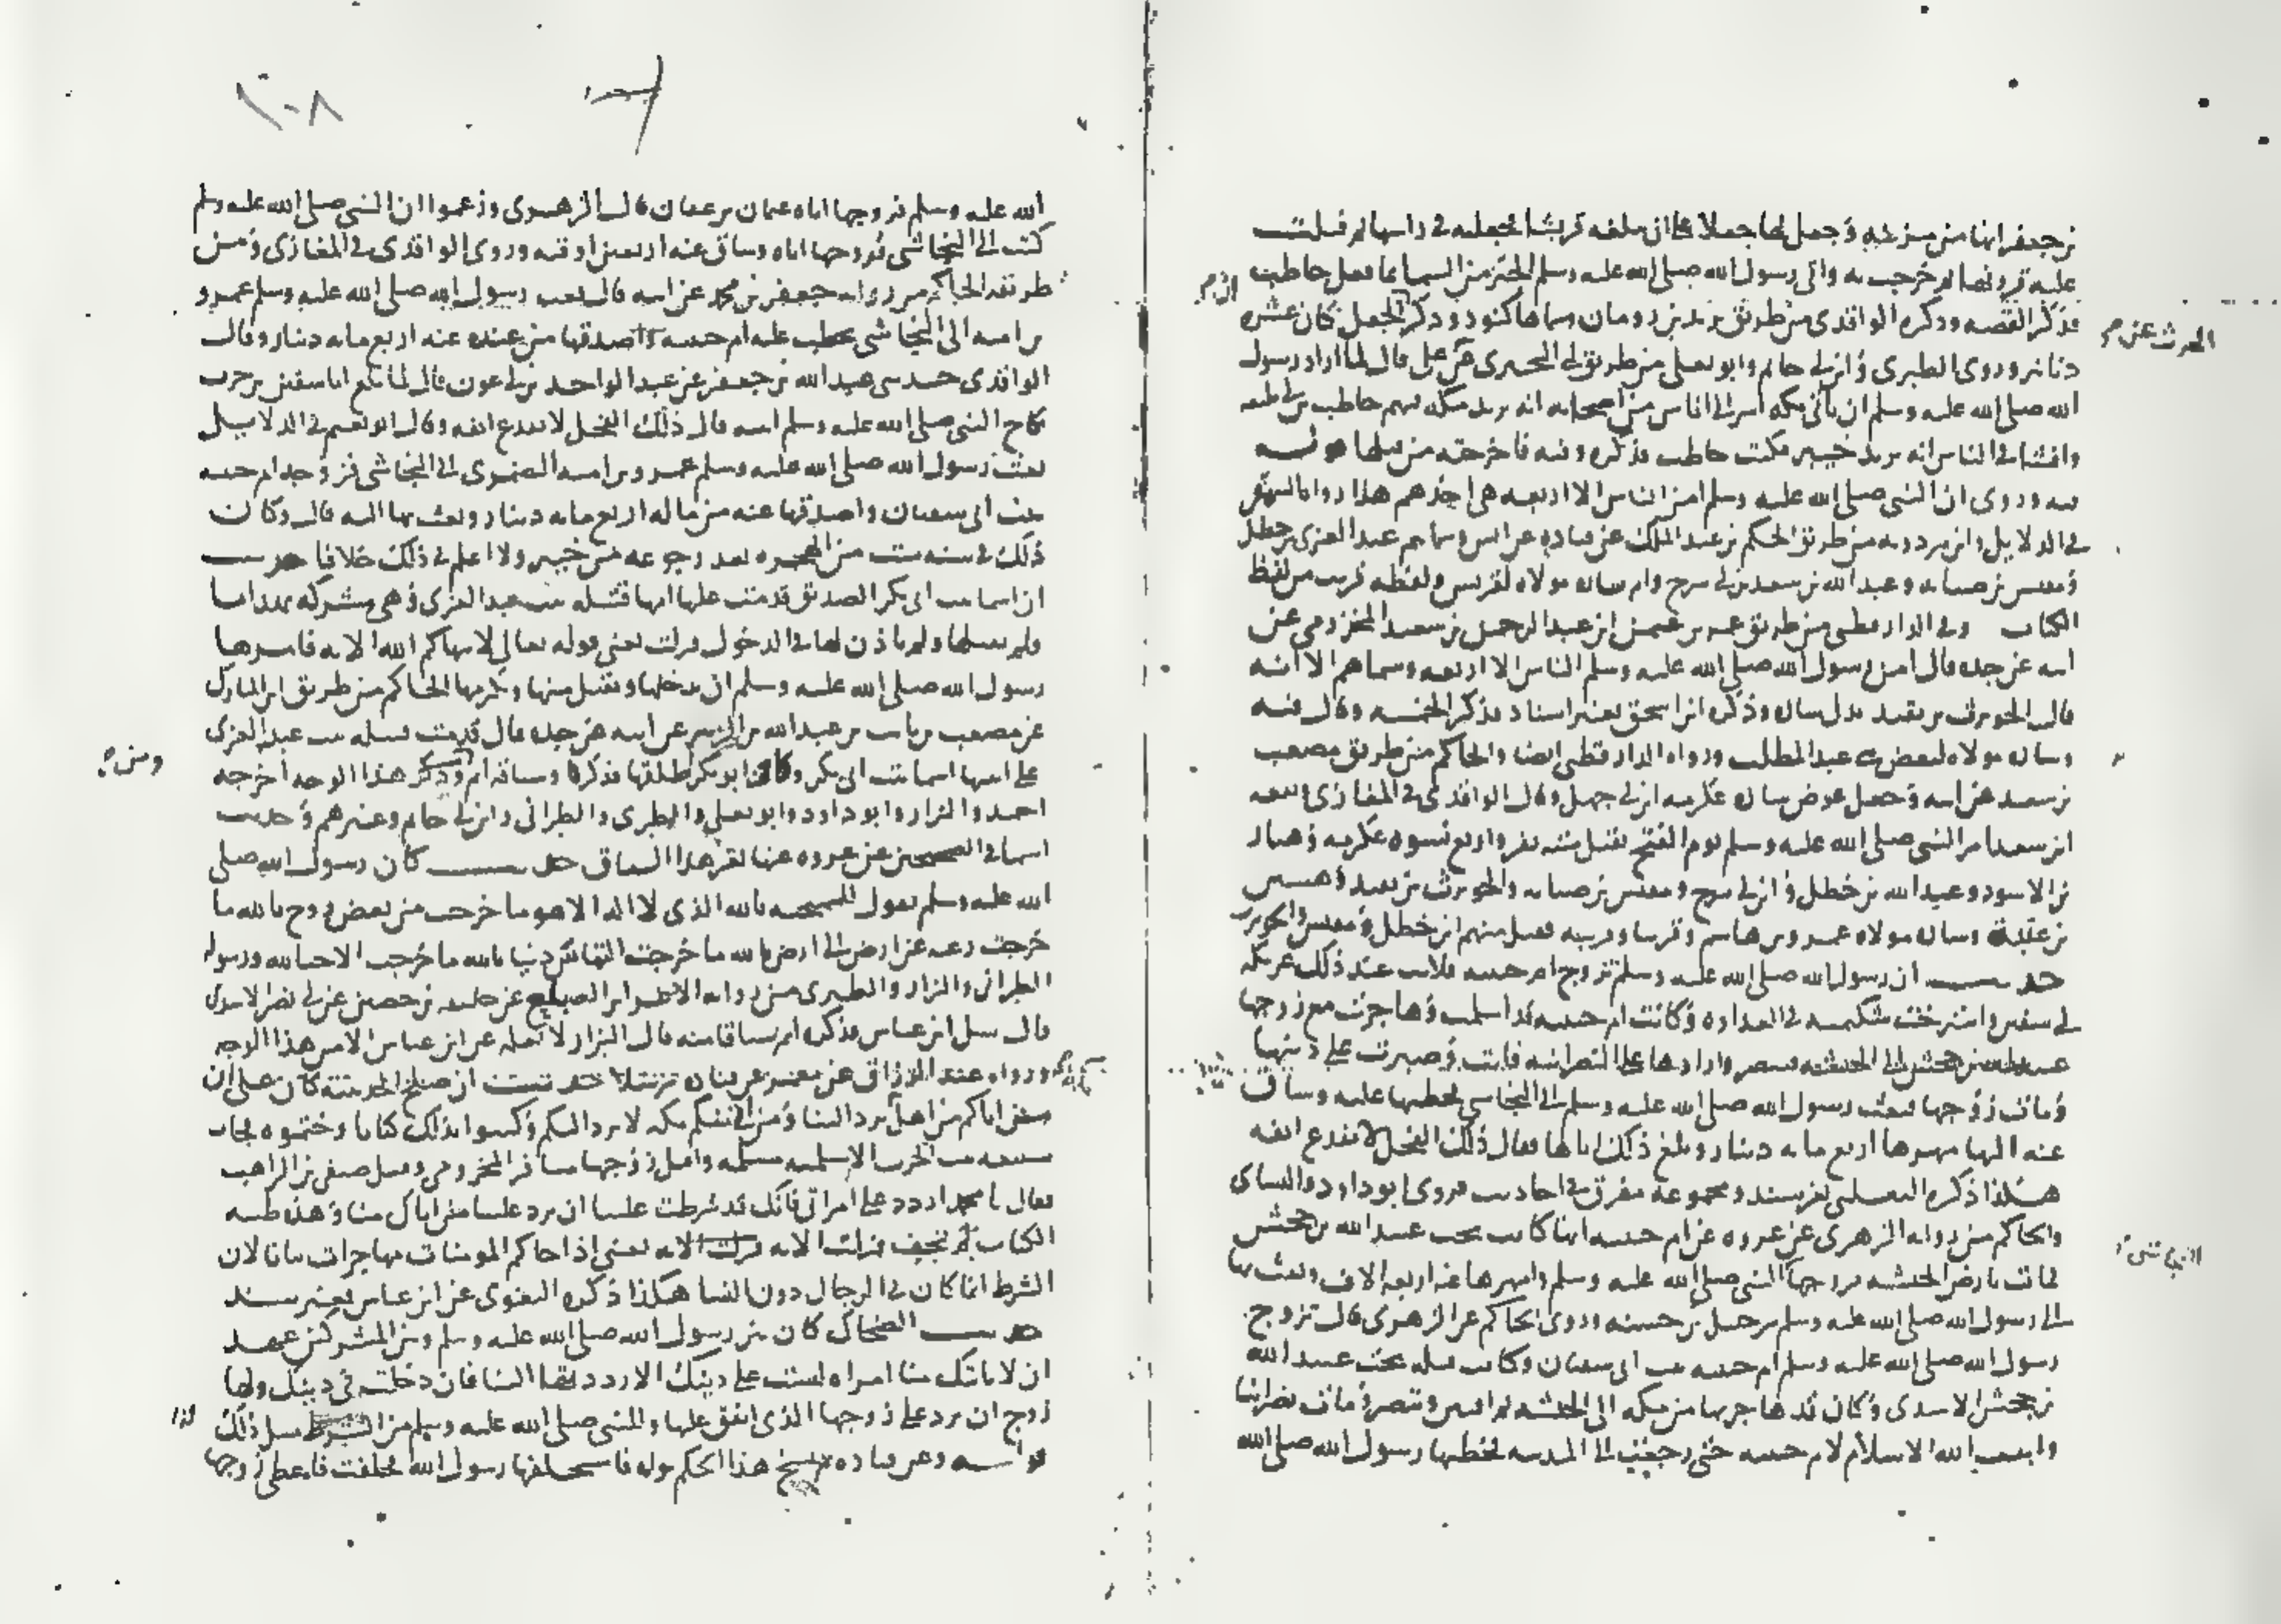 بن جعفر انها من مزينه وجعل لها جعلا على ان تبلغه قريشا فجعلته في راسها ثم فتلت
عليه قرونها ثم خرجت به واتى رسول الله صلى الله عليه وسلم الخبر من السما بما فعل حاطب
فذكر القصه وذكره الواقدي من طريق يزيد بن رومان وسماها كنود وذكر ان الجعل كان عشره
دنانير وروى الطبري وابن ابي حاتم وابو يعلى من طريق ابي البختري عن علي قال لما اراد رسول
الله صلى الله عليه وسلم ان ياتي مكه اسر الى اناس من اصحابه انه يريد مكه فيهم حاطب بن ابي بلتعه
وافشا في الناس انه يريد خيبر فكتب حاطب فذكره وفيه فاخرجته من قبلها قوله
وروى ان النبي صلى الله عليه وسلم امن الناس الا اربعه هي احدهم هذا رواه البيهقي
في الدلايل وابن مردويه من طريق الحكم بن عبد الملك عن قتاده عن انس وسماهم عبد العزى بن خطل
ومقيس بن صبابه وعبد الله بن سعد بن ابي سرح وام ساره مولاه لقريش ولفظه قريب من لفظ
الكتاب وفي الدارقطني من طريق عمر بن عثمن ابن عبد الرحمن بن سعيد المخزومي عن
ابيه عن جده قال امن رسول الله صلى الله عليه وسلم الناس الا اربعه وسماهم الا انه
قال الحويرث بن نقيد بدل ساره وذكره ابن اسحق بغير اسناد فذكر الخمسه وقال فيه
وساره مولاه لبعض بني عبد المطلب ورواه الدارقطني ايضا والحاكم من طريق مصعب
بن سعد عن ابيه وجعل عوض ساره عكرمه ابن ابي جهل وقال الواقدي في المغازي
ابن سعد امر النبي صلى الله عليه وسلم يوم الفتح بقتل سته نفر واربع نسوه عكرمه وهبار
بن الاسود وعبد الله بن خطل وابن ابي سرح ومقيس بن صبابه والحويرث بن نقيد وهند
بنت عتبة وساره مولاه عمرو بن هاشم وقرينا وقريبه فقتل منهم ابن خطل ومقيس والحويرث
حديث ان رسول الله صلى الله عليه وسلم تزوج ام حبيبه فلانت عند ذلك عريكه
ابي سفين واسترخت شكيمته في العداوه وكانت ام حبيبه قد اسلمت وهاجرت مع زوجها
عبيد الله بن جحش الى الحبشه فتنصر وارادها على النصرانيه فابت وصبرت على دينها
ومات زوجها فبعث رسول الله صلى الله عليه وسلم الى النجاشي فخطبها عليه وساق
عنه اليها مهرها اربع مايه دينار وبلغ ذلك اباها فقال ذلك الفحل لا يقدع انفه
هكذا ذكره الثعلبي بغير سند ومجموعه مفرق في احاديث فروى ابو داود والنساي
والحاكم من روايه الزهري عن عروه عن ام حبيبه انها كانت تحت عبيد الله بن جحش
فمات بارض الحبشه فزوجها النبي صلى الله عليه وسلم وامهرها عنه اربعه الاف وبعث بها
الى رسول الله صلى الله عليه وسلم مع شرحبيل بن حسنه وروى الحاكم عن الزهري قال تزوج
رسول الله صلى الله عليه وسلم ام حبيبه بنت ابي سفيان وكانت قبله تحت عبيد الله
بن جحش الاسدي وكان قد هاجر بها من مكه الى الحبشه ثم افتتن وتنصر ومات نصرانيا
واثبت الله الاسلام لام حبيبه حتى رجعت الى المدينه فخطبها رسول الله صلى الله
١٠٨
الله عليه وسلم فزوجها اياه عثمان بن عفان قال الزهري وزعموا ان النبي صلى الله عليه وسلم
كتب الى النجاشي فزوجها اياه وساق عنه اربعين اوقيه وروى الواقدي في المغازي ومن
طريقه الحاكم من روايه جعفر بن محمد عن ابيه قال بعث رسول الله صلى الله عليه وسلم عمرو
بن اميه الى النجاشي يخطب عليه ام حبيبه واصدقها من عنده عنه اربع مايه دينار وقال
الواقدي حدثني عبد الله بن جعفر عن عبد الواحد بن ابي عون قال لما بلغ ابا سفين بن حرب
نكاح النبي صلى الله عليه وسلم ابنته قال ذلك الفحل لا يقدع انفه وقال ابو نعيم في الدلايل
بعث رسول الله صلى الله عليه وسلم عمرو بن اميه الضمري الى النجاشي فزوجه ام حبيبه
بنت ابي سفيان واصدقها عنه من ماله اربع مايه دينار وبعث بها اليه قال وكان
ذلك في سنه ست من الهجره بعد رجوعه من خيبر ولا اعلم في ذلك خلافا حديث
ان اسما بنت ابي بكر الصديق قدمت عليها امها قتيله بنت عبد العزى وهي مشركه بهدايا
ولم تقبلها ولم تاذن لها في الدخول فنزلت يعني قوله تعالى لا ينهاكم الله الايه فامرها
رسول الله صلى الله عليه وسلم ان تدخلها وتقبل منها وتكرمها الحاكم من طريق ابن المبارك
عن مصعب بن ثابت بن عبد الله بن الزبير عن ابيه عن جده قال قدمت قتيله بنت عبد العزى
على ابنتها اسما بنت ابي بكر وكان ابو بكر طلقها فذكره وسياقه اتم هذا الوجه اخرجه
احمد والبزار وابو داود وابو يعلى والطبري والطبراني وابن ابي حاتم وغيرهم وحديث
اسما في الصحيحين عن عروه عنها بغير هذا السياق حديث كان رسول الله صلى
الله عليه وسلم يقول للممتحنه بالله الذي لا اله الا هو ما خرجت من بغض زوج بالله ما
خرجت رغبه عن ارض الى ارض بالله ما خرجت التماس دنيا بالله ما خرجت الا حبا لله ورسوله
الطبراني والبزار والطبري من روايه الاغر بن الصباح عن خليفه بن حصين عن ابي نصر الاسدي
قال سيل ابن عباس فذكره اتم سياقا منه قال البزار لا نعلمه عن ابن عباس الا من هذا الوجه
ورواه عبد الرزاق عن معمر عن قتاده مرسلا حديث ان صلح الحديبيه كان على ان
من اتاكم من اهل مكه يرد الينا ومن اتى منكم مكه لا يرد اليكم وكتبوا بذلك كتابا وختموه فجات
سبيعه بنت الحرث الاسلميه مسلمه واقبل زوجها مسافر المخزومي وقيل صيفي بن الراهب
فقال يا محمد اردد علي امراتي فانك قد شرطت علينا ان ترد علينا من اتاك منا وهذه طينه
الكتاب لم تجف فنزلت الايه يعني اذا جاكم المومنات مهاجرات بيانا لان
الشرط انما كان في الرجال دون النسا هكذا ذكره البغوي عن ابن عباس بغير سند
حديث الضحاك كان بين رسول الله صلى الله عليه وسلم وبين المشركين عهد
ان لا ياتيك منا امراه ليست على دينك الا رددتها الينا فان دخلت في دينك ولها
زوج ان ترد على زوجها الذي انفق عليها وللنبي صلى الله عليه وسلم من الشرط مثل ذلك
قوله وعن قتاده نسخ هذا الحكم قوله فاستحلفها رسول الله فحلفت فاعطى زوجها